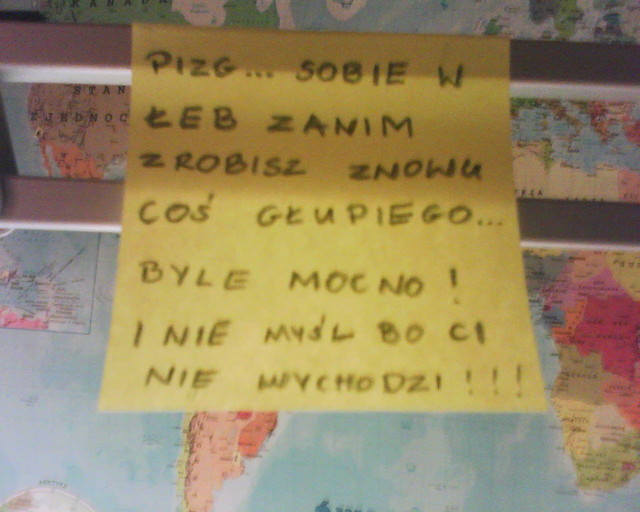 KANADA
PIZG... SOBIE W
ŁEB ZANIM
ZROBISZ ZNOWU
COŚ GŁUPIEGO...
BYLE MOCNO!
I NIE MYŚL BO CI
NIE WYCHODZI!!!
STAN
ZJEDNOC